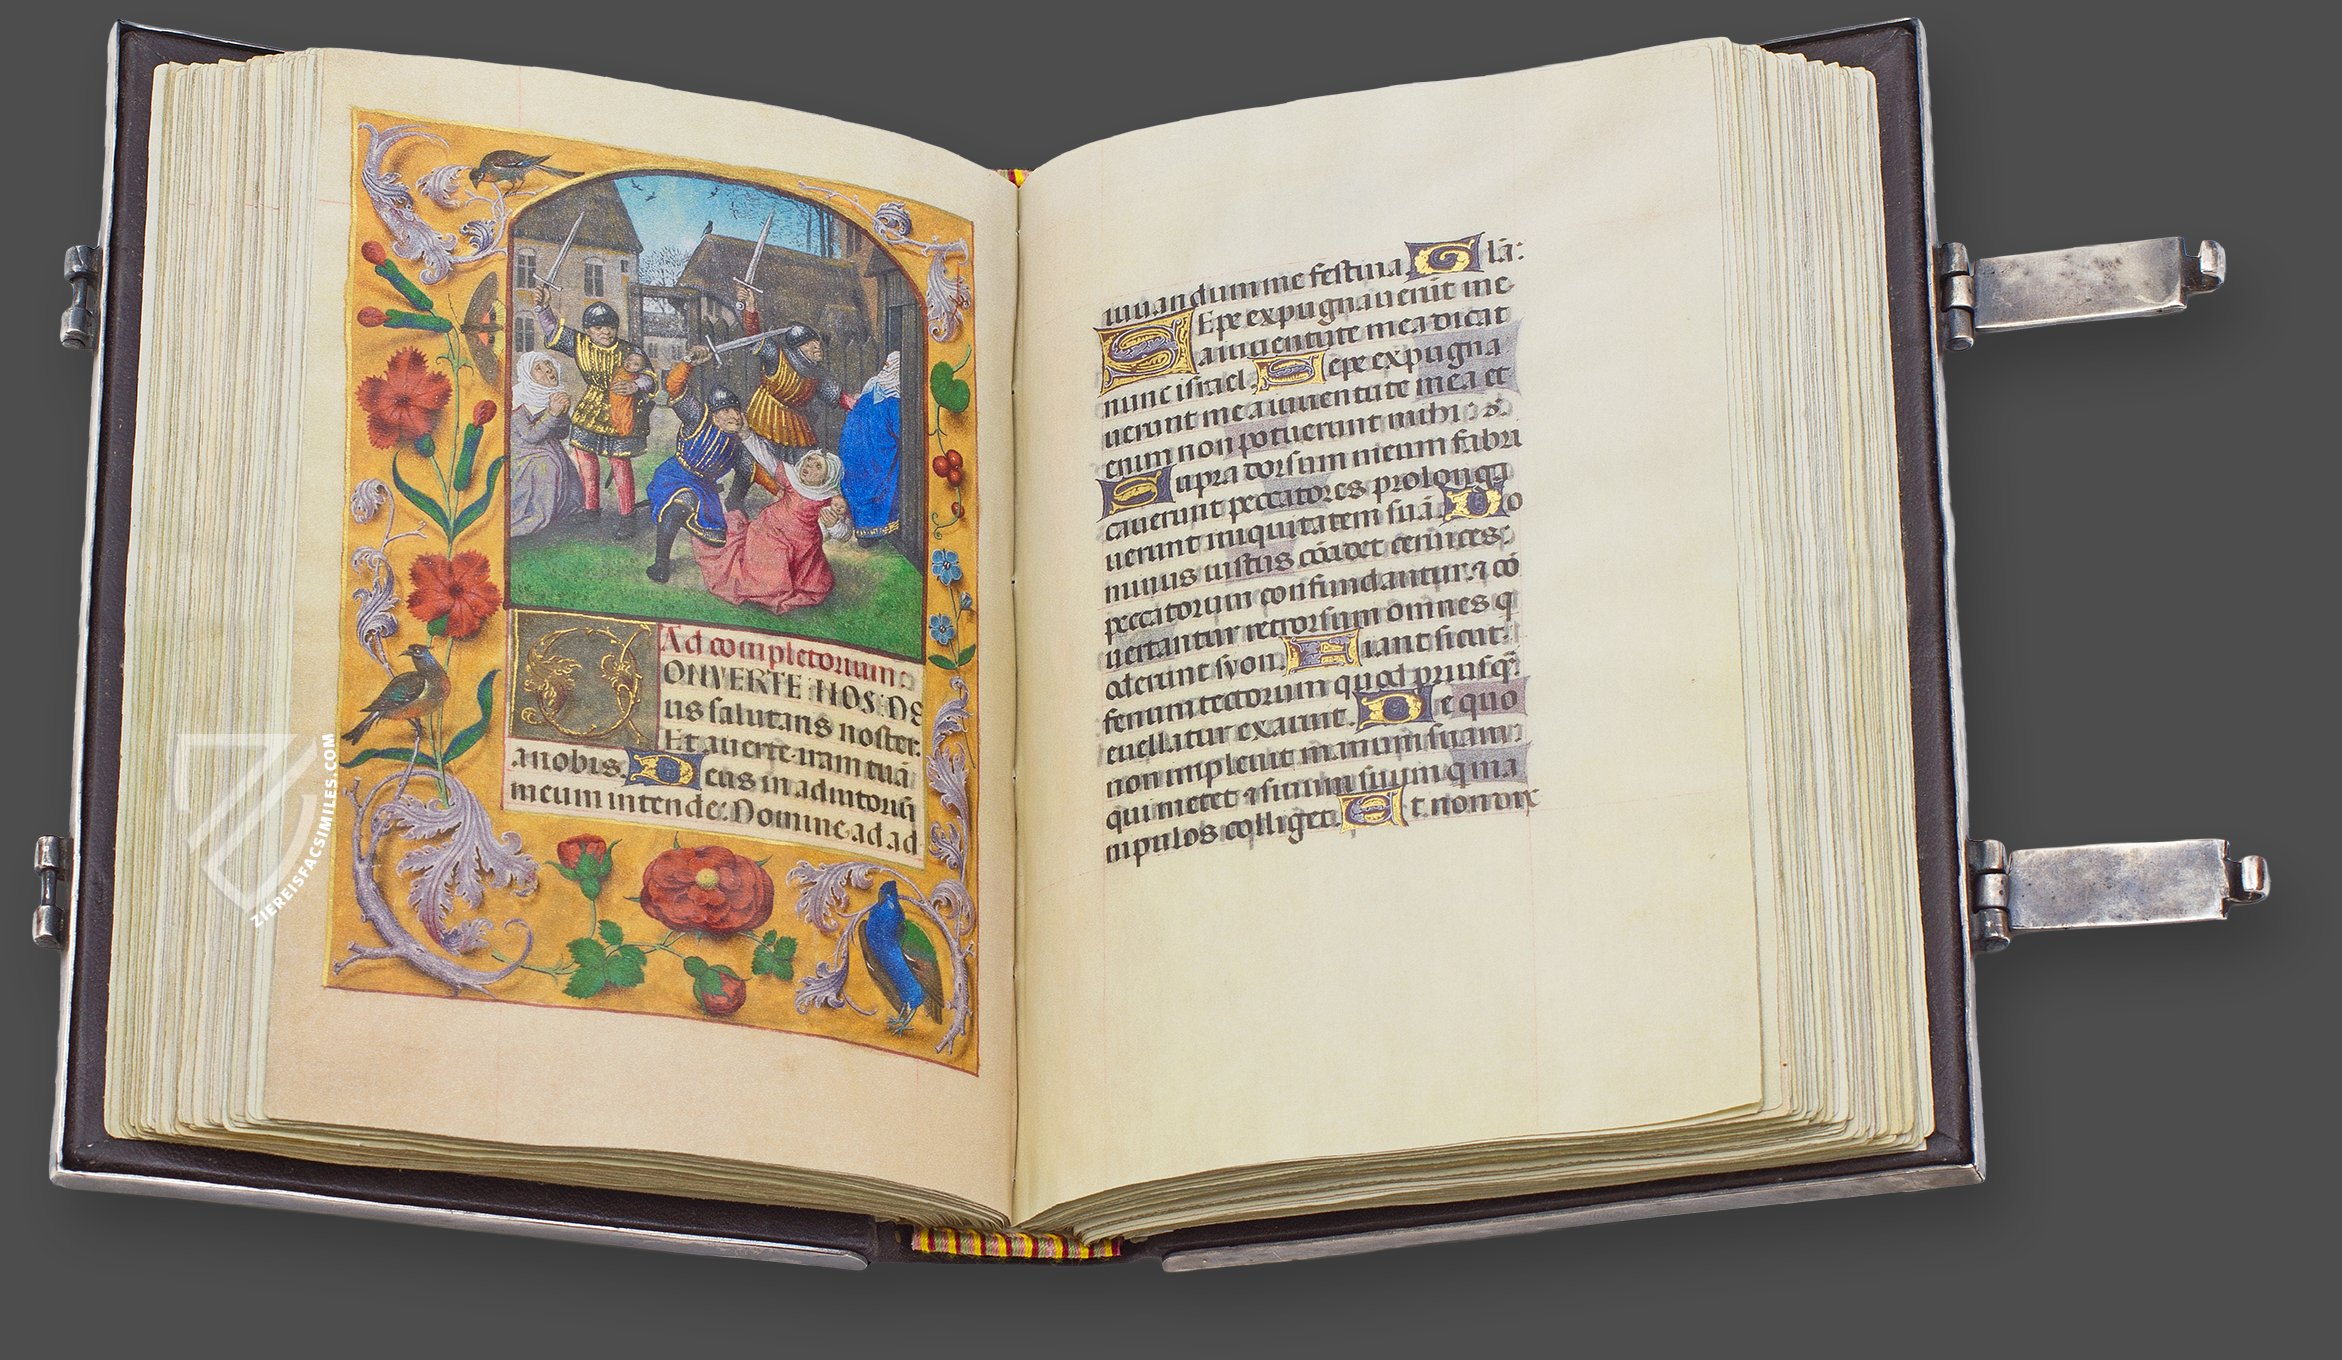 Ad completorium
CONVERTE NOS DE
us salutaris noster.
Et auerte iram tuā
a nobis. Deus in adiutoriū
meum intende. Domine ad ad
iuuandum me festina. Glā:
Sepe expugnauerūt me
a iuuentute mea dicat
nunc israel. Sepe expugna
uerunt me a iuuentute mea et
enim non potuerunt mihi.
Supra dorsum meum fabri
cauerunt peccatores prolonga
uerunt iniquitatem suā. Do
minus iustus cōcidet ceruices
peccatorum confundantur ⁊ cō
uertantur retrorsum omnes q
oderunt syon. Fiant sicut
fenum tectorum quod priusq̄
euellatur exaruit. De quo
non impleuit manum suam
qui metet ⁊ sinum suum q ma
nipulos colliget. Et non dix
ZIEREISFACSIMILES.COM